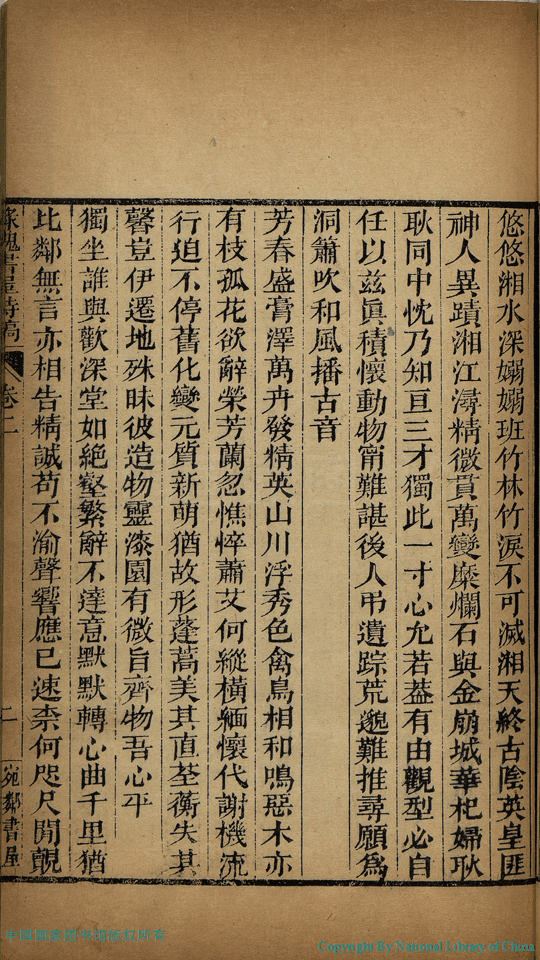 悠悠湘水深嫋嫋班竹林竹淚不可滅湘天終古陰英皇匪
神人異蹟湘江潯精微貫萬變糜爛石與金崩城華杞婦耿
耿同中忱乃知亘三才獨此一寸心允若葢有由觀型必自
任以兹眞積懷動物甯難諶後人弔遺踪荒邈難推尋願爲
洞簫吹和風播古音
芳春盛膏澤萬卉發精英山川浮秀色禽鳥相和鳴惡木亦
有枝孤花欲辭榮芳蘭忽憔悴蕭艾何縱橫緬懷代謝機流
行迫不停舊化變元質新萌猶故形蓬蒿美其直荃蘅失其
馨豈伊遷地殊昧彼造物靈漆園有微旨齊物吾心平
獨坐誰與歡深堂如絶壑繁辭不達意默默轉心曲千里猶
比鄰無言亦相告精誠苟不渝聲響應已速柰何咫尺閒覿
槐書屋詩稿 卷二 二 宛鄰書屋
中国国家图书馆版权所有
Copyright By National Library of China